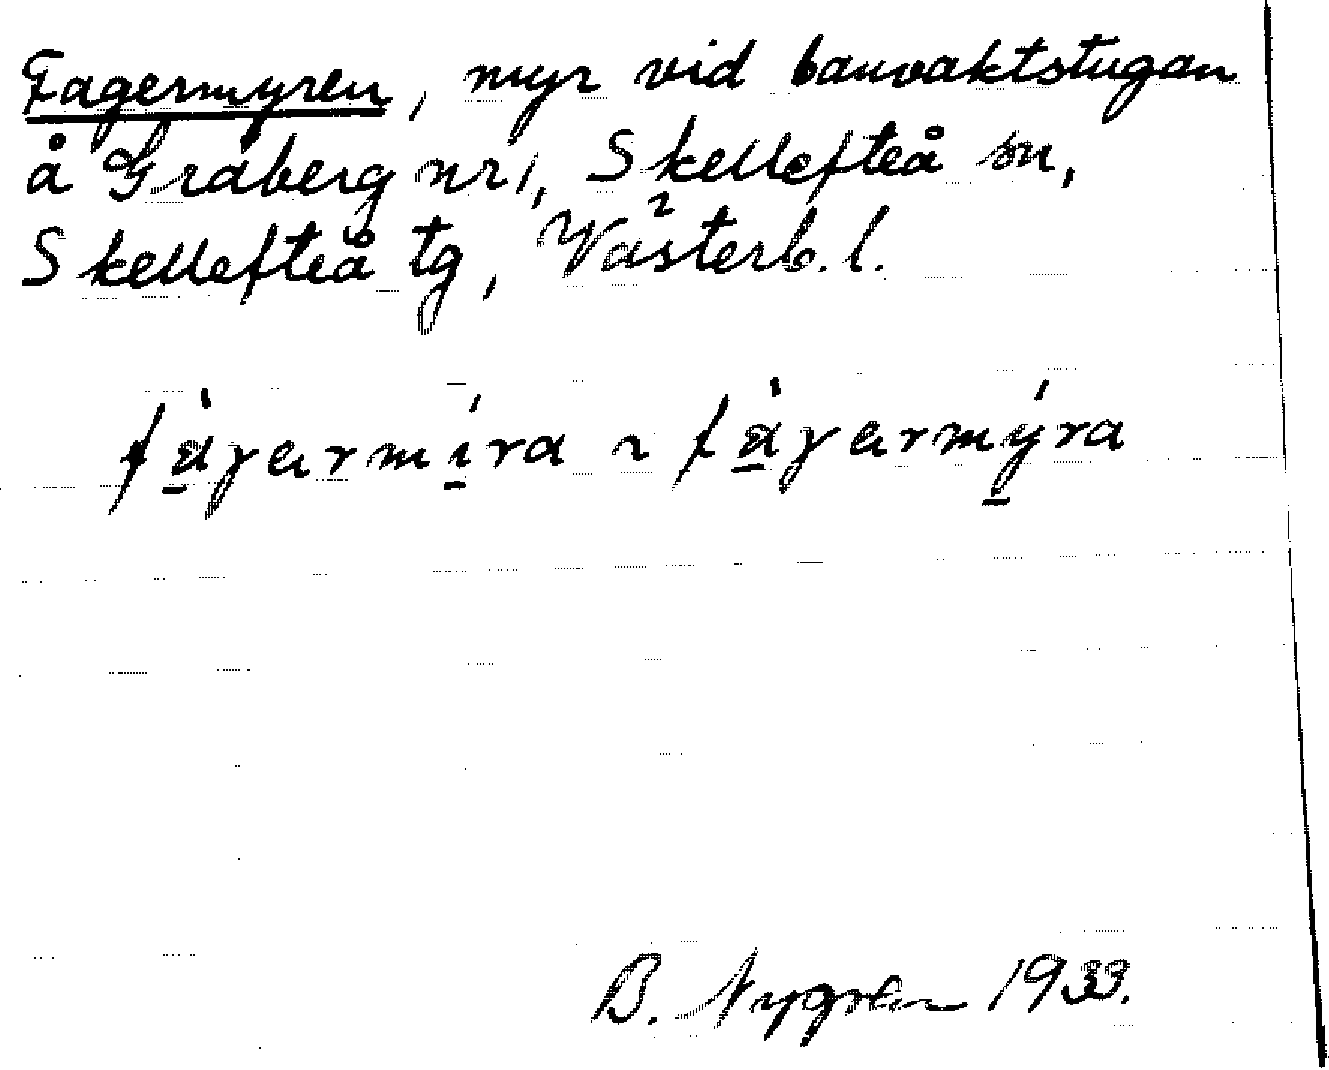 Fagermyren, myr vid banvaktstugan
å Gråberg nr 1, Skellefteå sn,
Skellefteå tg, Västerb. l.
fàgermíra ~ fàgermýra
B. Nygren 1933.